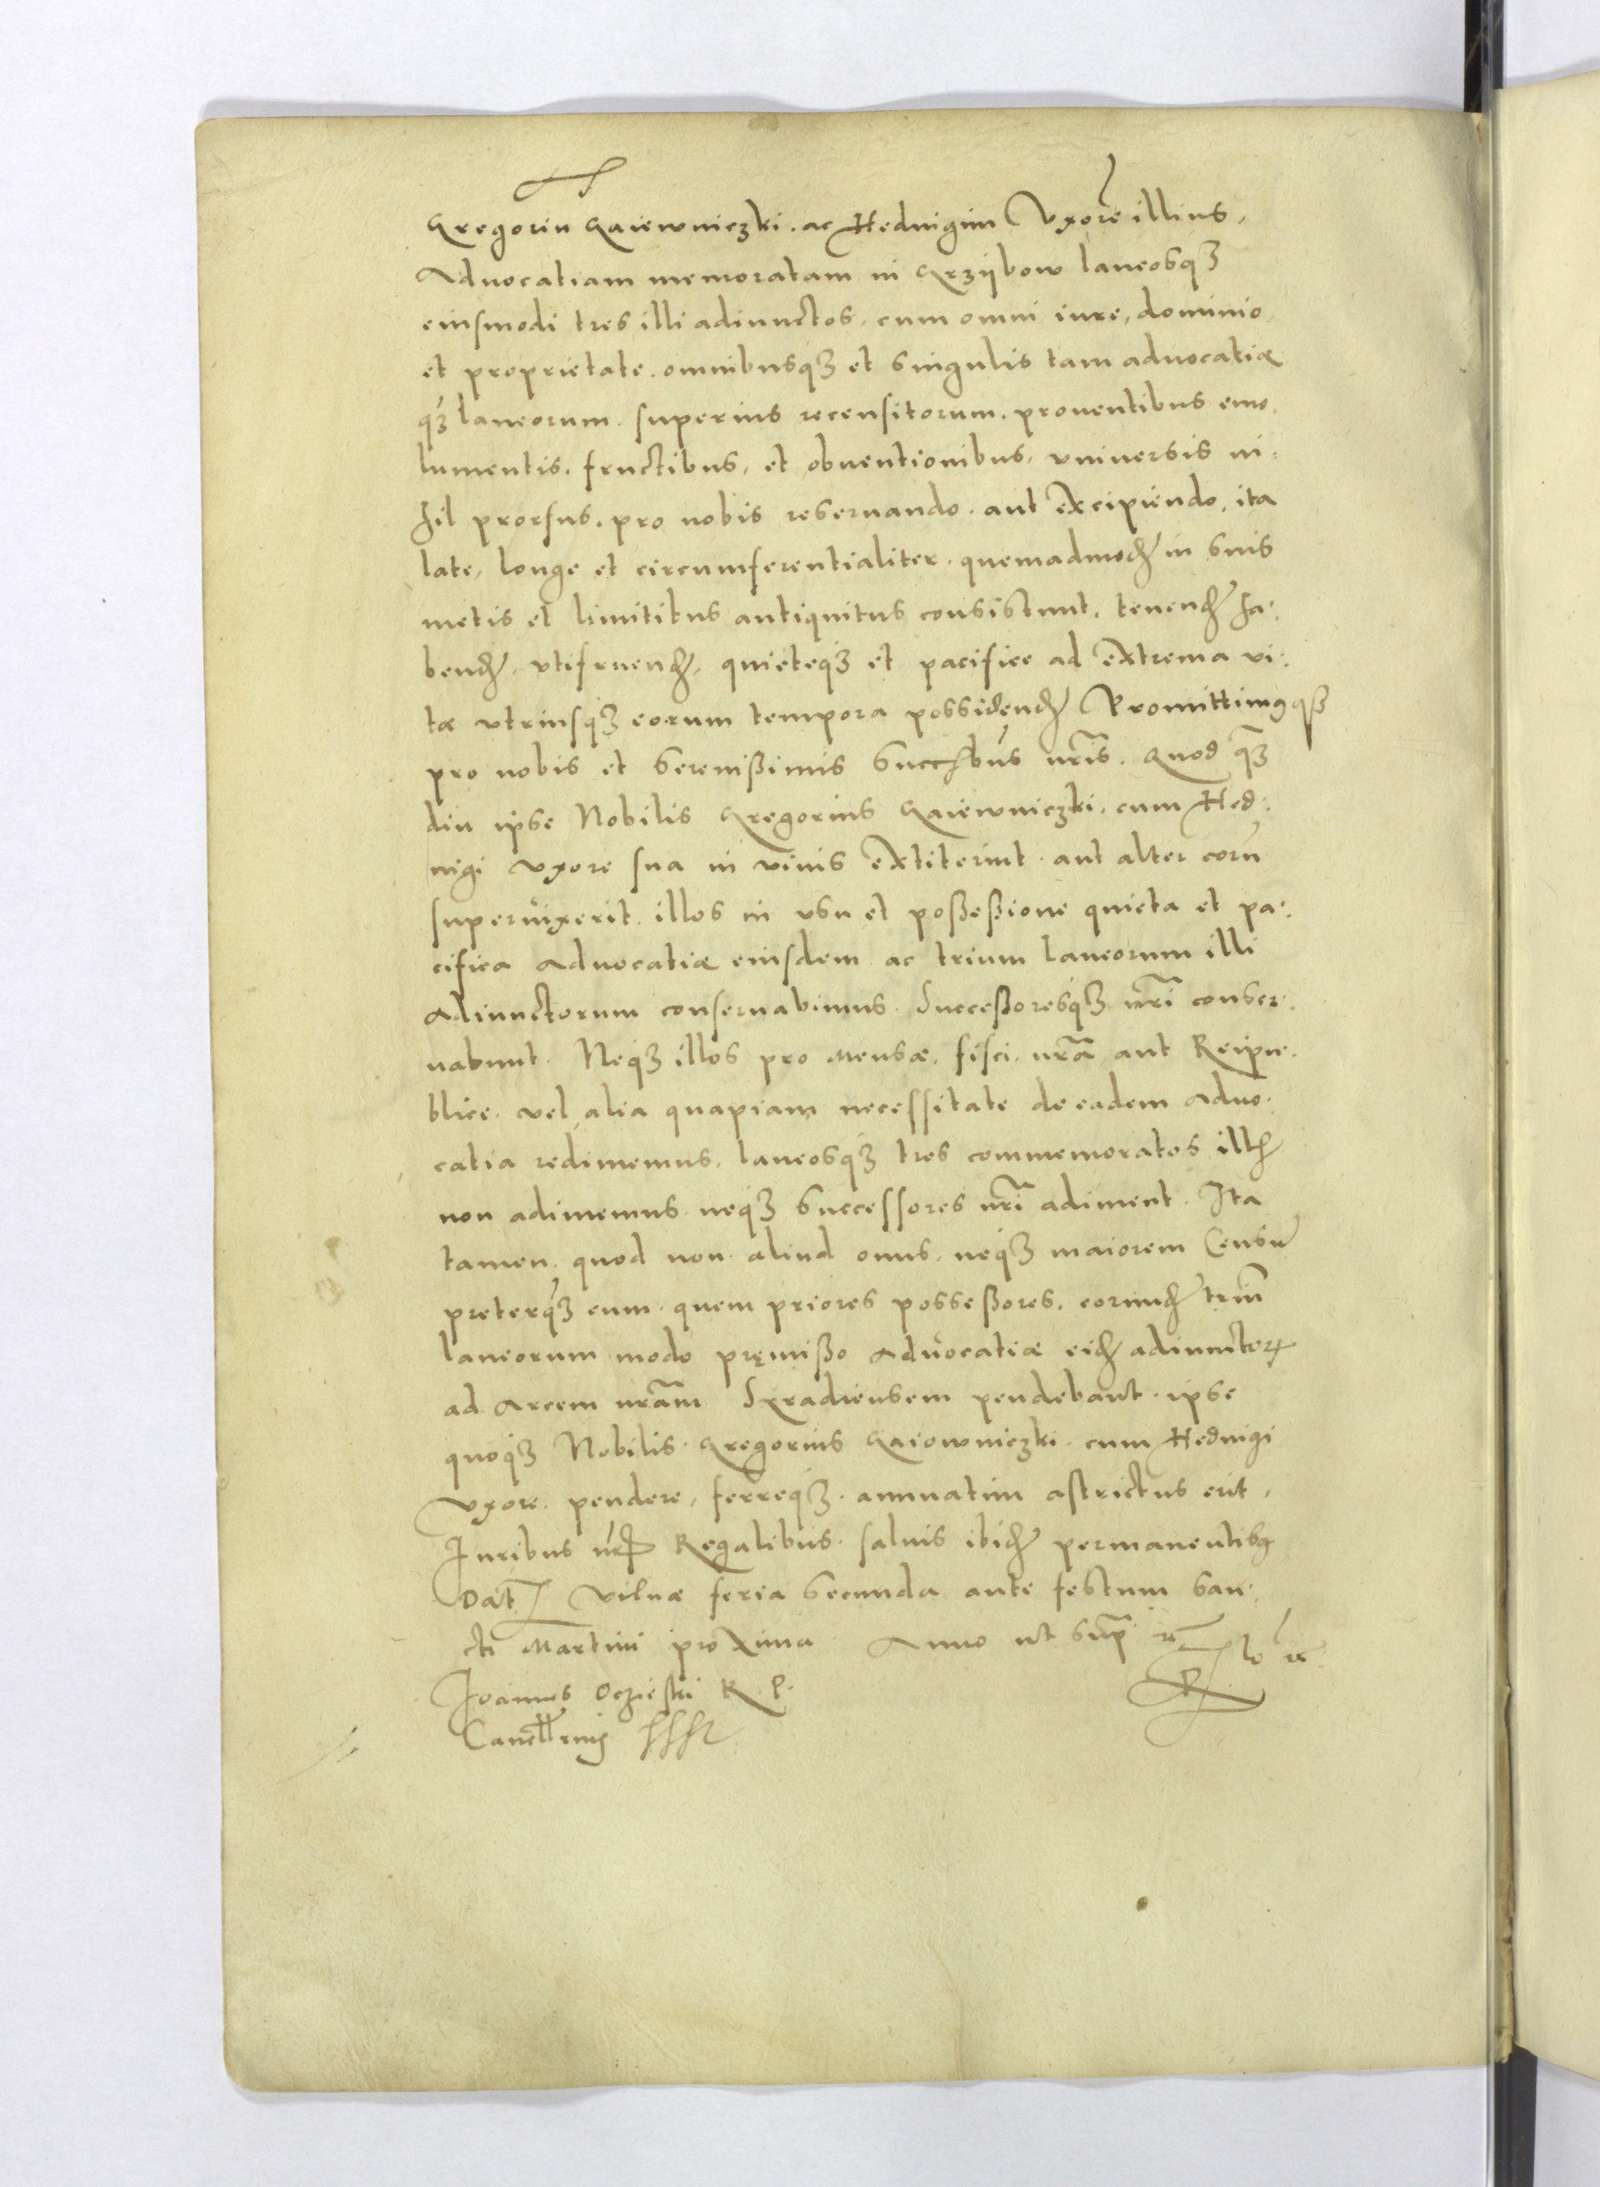 Gregoriu Gaiewniczki. ac Hedvigim Vxorē illius,
Advocatiam memoratam in Grzÿbow laneosqʒ
eiusmodi tres illi adiunctos. cum omni iure, dominio
et proprietate. omnibusqʒ et singulis tam advocatiæ
qʒ laneorum. superius recensitorum. proventibus emo.
lumentis. fructibus, et obventionibus. vniversis ni.
hil prorsus. pro nobis reservando. aut excipiendo, ita
late, longe et circumferentialiter. quemadmodꝫ in suis
metis et limitibus antiquitus consistunt. tenendꝫ ha.
bendꝫ. vtifruendꝫ, quieteqʒ et pacifice ad extrema vi.
tæ vtriusqʒ eorum tempora possidendꝫ Promittimꝰqꝫ
pro nobis et Serenißimis Succbus nr̄is. Quod qʒ
diu ipse Nobilis Gregorius Gaiewniczki. cum Hed.
vigi vxore sua in vivis extiterint. aut alter eorū
supervixerit. illos in vsu et poßeßione quieta et pa.
cifica Advocatiæ eiusdem ac trium laneorum illi
adiunctorum conservabimus. Succeßoresqʒ nr̄i conser.
vabunt. Neqʒ illos pro Mensæ. fisci. nr̄a aut Reipu.
blice. vel alia quapiam necessitate de eadem Advo.
catia redimemus. laneosqʒ tres commemoratos illꝫ
non adimemus. neqʒ Successores nr̄i adiment. Ita
tamen. quod non aliud onus. neqʒ maiorem Censū
preterqʒ eum. quem priores possessores. eorundꝫ triū
laneorum modo pręmißo Advocatiæ eidꝫ adiunctorꝝ
ad Arcem nr̄am Syradiensem pendebant. ipse
quoqʒ Nobilis. Gregorius Gaiowniczki. cum Hedvigi
vxore. pendere, ferreqʒ. annuatim astrictus erit.
Iuribus nr̄is Regalibus. salvis ibidꝫ permanentibꝰ
Dat. Vilnæ feria secunda ante festum San.
cti Martini proxima Anno ut supr̄
Ioannes Oczieski R. P.
Cancellrius